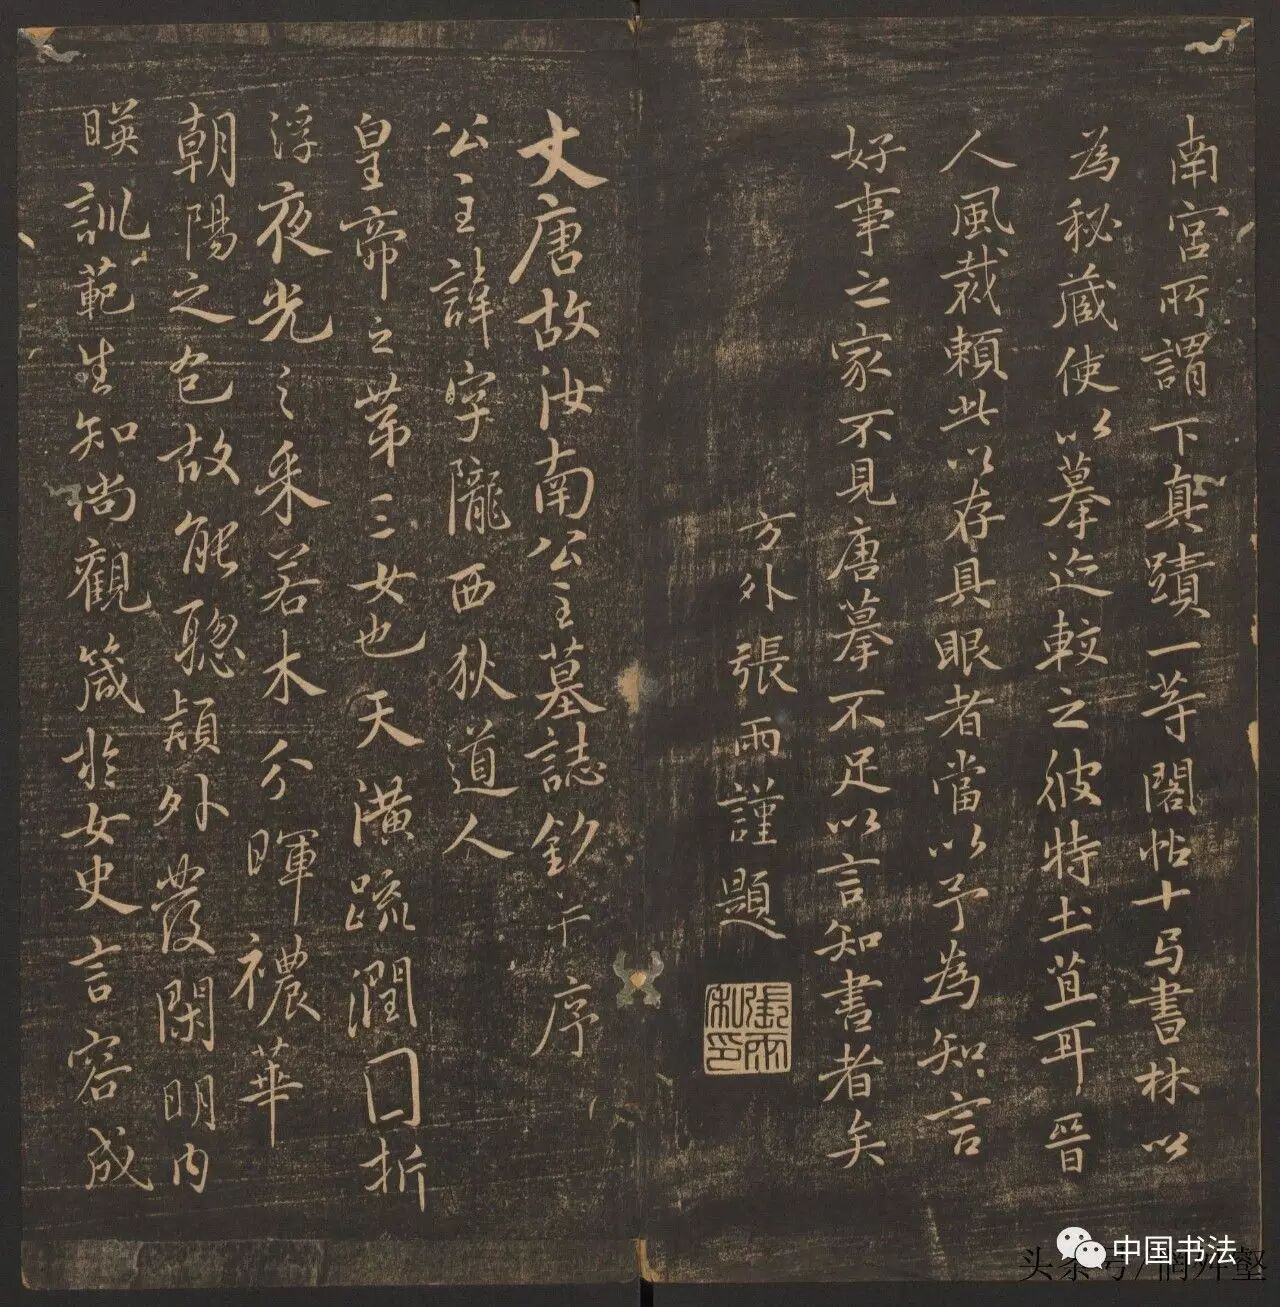 南宮所謂下真蹟一等閣帖十與書林以
為秘蔵使以摹迹較之彼特土苴耳晉
人風裁賴此以存具眼者當以予為知言
好事之家不見唐摹不足以言知書者矣
方外張雨謹題
張雨私印
大唐故汝南公主墓誌銘并序
公主諱字隴西狄道人
皇帝之第三女也天潢疏潤圓折
浮夜光之采若木分暉穠華
朝陽之色故能聰穎外發閑明內
暎訓範生知尚觀箴於女史言容成
中国书法
头条号/